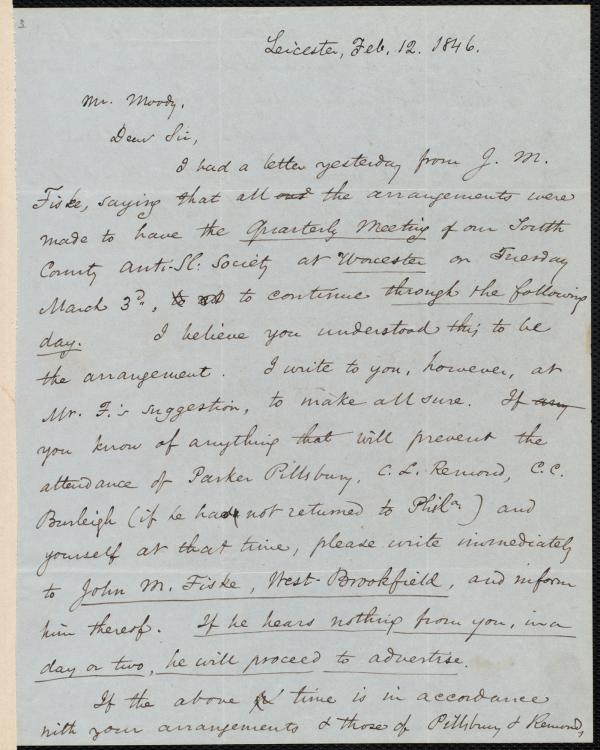 3
Leicester, Feb. 12. 1846.
Mr. Moody,
Dear Sir,
I had a letter yesterday from J. M.
Fiske, saying that all and the arrangements were
made to have the Quarterly Meeting of our South
County Anti-Sl: Society at Worcester on Tuesday
March 3d., to continue through the following
day. I believe you understood this to be
the arrangement. I write to you, however, at
Mr. F.'s suggestion, to make all sure. If any
you know of anything that will prevent the
attendance of Parker Pillsbury, C. L. Remond, C. C.
Burleigh (if he has not returned to Phila.) and
yourself at that time, please write immediately
to John M. Fiske, West Brookfield, and inform
him thereof. If he hears nothing from you, in a
day or two, he will proceed to advertise.
If the above time is in accordance
with your arrangements & those of Pillsbury & Remond,